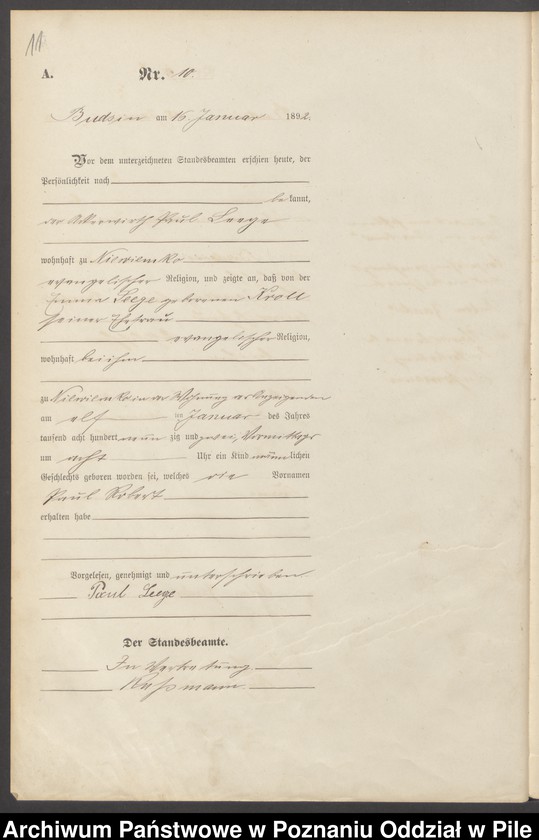 11
A.
Nr. 10.
Budsin am 15 Januar 1892.
Vor dem unterzeichneten Standesbeamten erschien heute, der
Persönlichkeit nach
be kannt,
der Ackerwirth Paul Seege
wohnhaft zu
evangelischer Religion, und zeigte an, daß von der
Emma Seege geborenen Kroll
seiner Ehefrau
evangelischer Religion,
wohnhaft bei ihm
zu in der Wohnung des Anzeigenden
am elf ten Januar des Jahres
tausend acht hundert neun zig und zwei, Vormittags
um acht Uhr ein Kind männlichen
Geschlechts geboren worden sei, welches die Vornamen
Paul Robert
erhalten habe
Vorgelesen, genehmigt und unterschrieben
Paul Seege
Der Standesbeamte.
In Vertretung